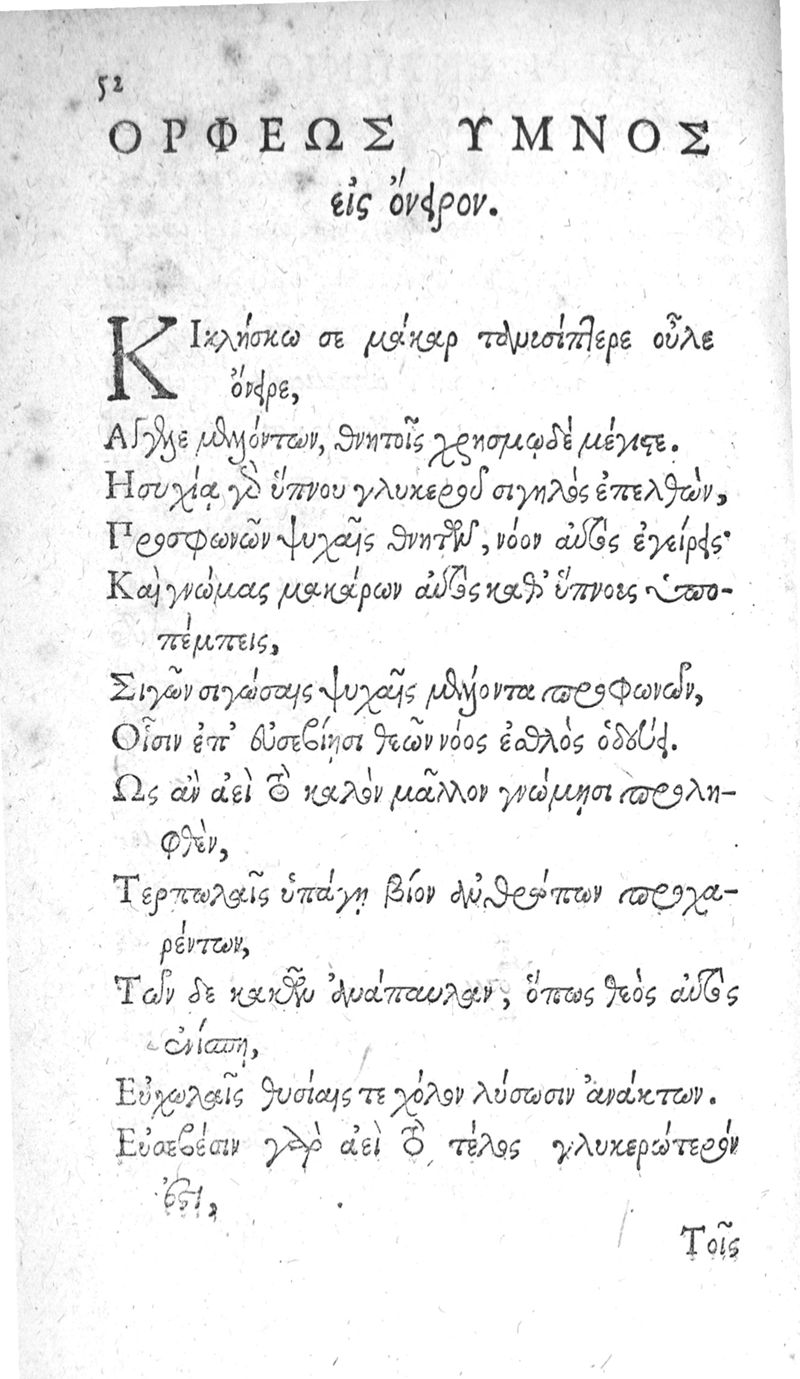 52
ΟΡΦΕΩΣ ΥΜΝΟΣ
εἰς ὄνειρον.
ΚΙκλήσκω σε μάκαρ τανυσίπτερε οὖλε
ὄνειρε,
Αγγελε μελλόντων, θνητοῖς χρησμῳδὲ μέγιστε.
Ησυχίᾳ γὰρ ὕπνου γλυκεροῦ σιγηλὸς ἐπελθὼν,
Προσφωνῶν ψυχαῖς θνητῶν, νόον αὐτὸς ἐγείρεις·
Καὶ γνώμας μακάρων αὐτὸς καθ' ὕπνους ὑπο-
πέμπεις,
Σιγῶν σιγώσαις ψυχαῖς μέλλοντα προφωνῶν,
Οἷσιν ἐπ' εὐσεβίησι θεῶν νόος ἐσθλὸς ὁδεύει.
Ως ἂν ἀεὶ τὸ καλὸν μᾶλλον γνώμησι προλη-
φθὲν,
Τερπωλαῖς ὑπάγη βίον ἀνθρώπων προχα-
ρέντων,
Τῶν δε κακῶν ἀνάπαυλαν, ὅπως θεὸς αὐτὸς
ἐνίσπῃ,
Εὐχωλαῖς θυσίαις τε χόλον λύσωσιν ἀνάκτων.
Εὐσεβέσιν γὰρ ἀεὶ τὸ τέλος γλυκερώτερόν
ἐστι,
Τοῖς